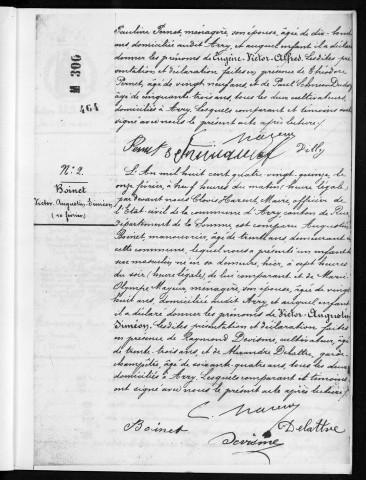 Pauline Pernet, ménagère, son épouse, âgée de dix-huit
ans domiciliée audit Arry, et auquel enfant il a déclaré
donner les prénoms de Eugène-Victor-Alfred. Lesdites pré-
sentation et déclaration faites en présence de Théodore
Pernet, âgé de vingt neuf ans et de Paul
âgé de cinquante ans tous les deux cultivateurs,
domiciliés à Arry, lesquels comparant et témoins ont
signé avec nous le présent acte après lecture /.
M 300
464
N° 2.
Boinet
Victor, Augustin, Siméon
(10 février)
L'An mil huit cent quatre vingt quinze, le
onze février, à neuf heures du matin, heure légale
par devant nous Clovis Maire, officier de
l'Etat-civil de la commune d'Arry canton de Rue
département de la Somme, est comparu Augustin
Boinet, manouvrier, âgé de trente ans demeurant en
cette commune, lequel nous a présenté un enfant du
sexe masculin né en sa demeure, hier, à sept heures
du soir (heure légale), de lui comparant et de Marie
Olympe Mayeux, ménagère, son épouse, âgée de vingt
huit ans, domiciliée audit Arry, et auquel enfant
il a déclaré donner les prénoms de Victor-Augustin
Siméon. Lesdites présentation et déclaration faites
en présence de Raymond Devisme, cultivateur, âgé
de trente trois ans, et de Alexandre Delattre, garde-
champêtre, âgé de soixante-quatre ans, tous les deux
domiciliés à Arry. Lesquels comparant et témoins
ont signé avec nous le présent acte après lecture /.
Boinet
Devisme
Delattre